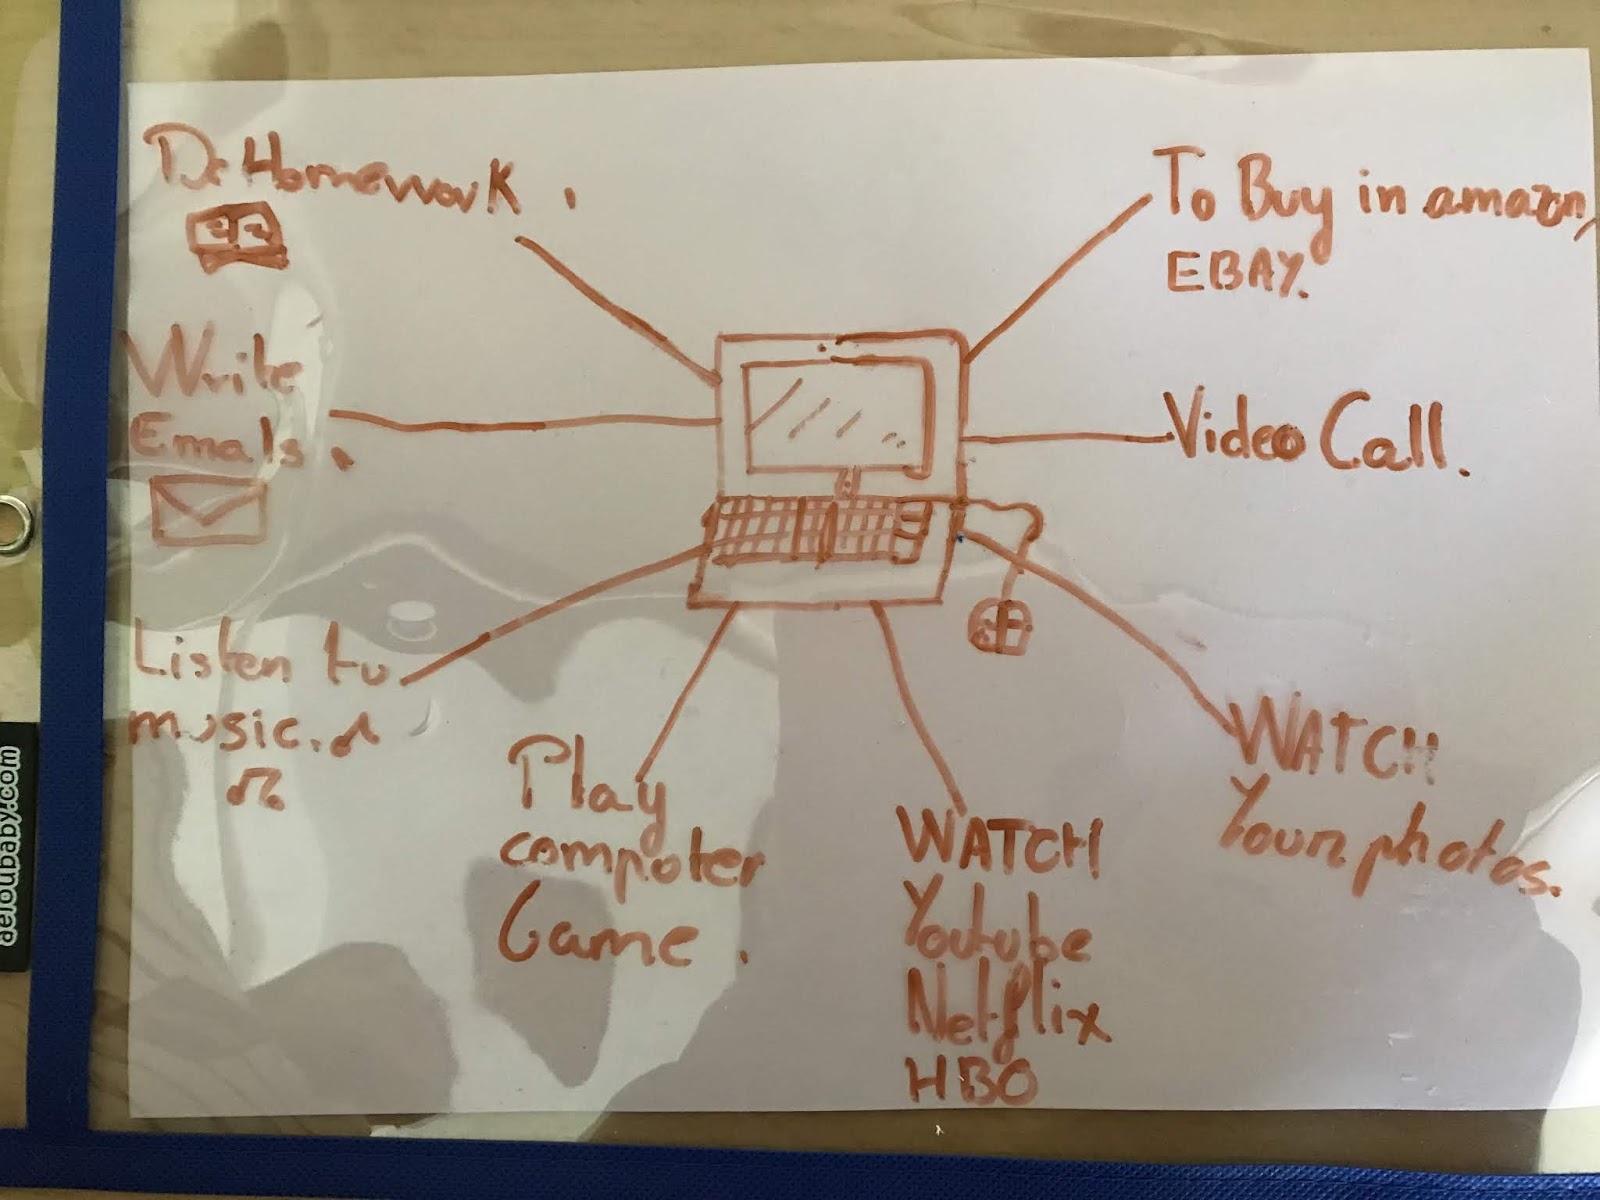 Do Homework.
To Buy in amazon,
EBAY.
Write
Emails.
Video Call.
Listen to
music.
Play
computer
Game.
WATCH
Youtube
Netflix
HBO
WATCH
Your photos.
aeioubaby.com